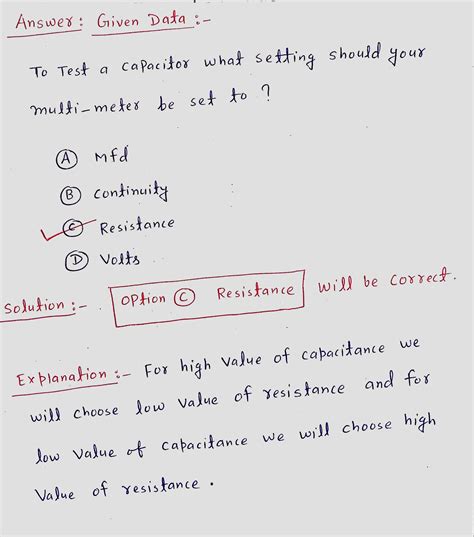 Answer : Given Data :-
To Test a capacitor what setting should your
multi-meter be set to ?
(A) Mfd
(B) Continuity
(C) Resistance
(D) Volts
Solution :- Option (C) Resistance will be correct.
Explanation :- For high value of capacitance we
will choose low value of resistance and for
low value of capacitance we will choose high
Value of resistance .